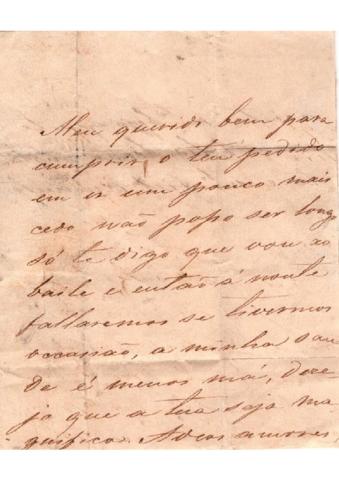 Meu querido bem para
cumprir o teu pedido
em ir um pouco mais
cedo não posso ser longa
só te digo que vou ao
baile e então á noute
fallaremos se tivermos
occasião, a minha sau
de é menos má, deze
jo que a tua seja ma
gnifica. Adeos amores,